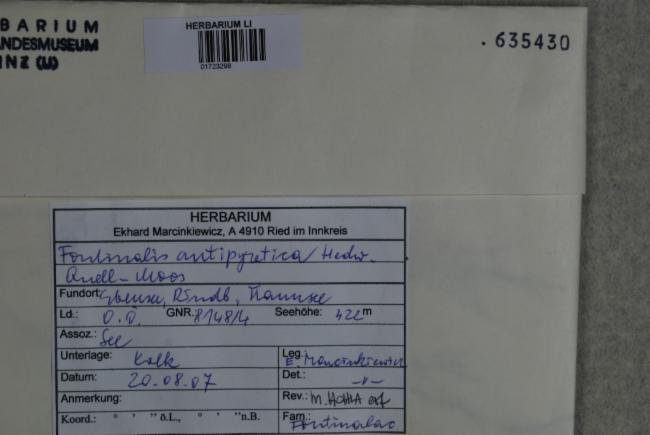 BARIUM
ANDESMUSEUM
INZ (U)
HERBARIUM LI
01723298
.635430
HERBARIUM
Ekhard Marcinkiewicz, A 4910 Ried im Innkreis
Fontinalis antipyretica Hedw.
Quell-Moos
Fundort: Ebensee, Rindb, Traunsee
Ld.: O.Ö. GNR. 8148/4 Seehöhe: 422 m
Assoz.: See
Unterlage: Kalk Leg.: E. Marcinkiewicz
Datum: 20.08.07 Det.: -"-
Anmerkung: Rev.: M. HOHLA
Koord.: ° ' " ö.L., ° ' " n.B. Fam.: Fontinalac